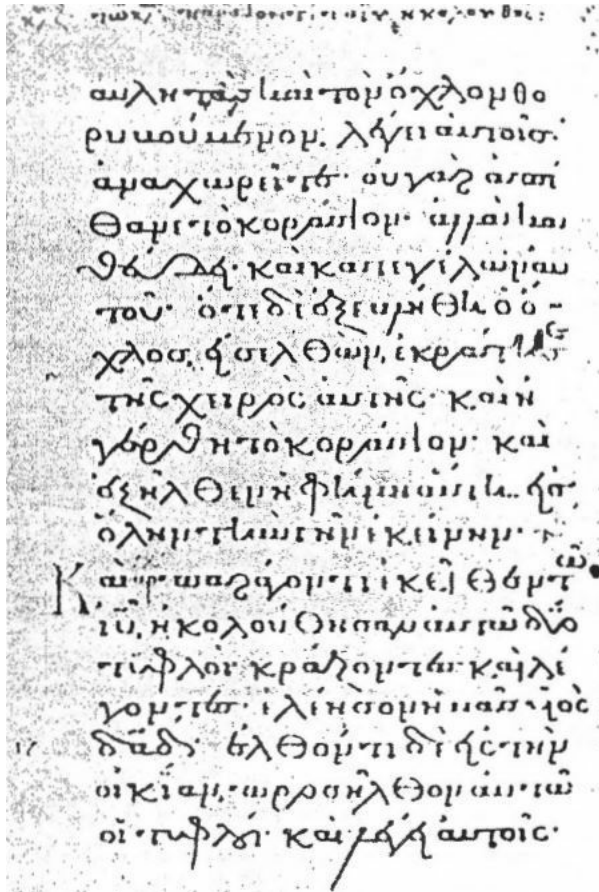 αυλητὰς καὶ τὸν ὄχλον θο
ρυβούμενον. λέγει αὐτοῖσ·
ἀναχωρεῖτε· οὐ γὰρ ἀπέ
θανε τὸ κοράσιον· ἀλλὰ κα
θεύδει· καὶ κατεγέλων αυ
τοῦ· ὅτε δὲ ἐξεβλήθη ὁ ὄ-
χλοσ, εἰσελθὼν, ἐκράτησε
τῆς χειρὸς αὐτῆς· καὶ ἠ
γέρθη τὸ κοράσιον· καὶ
ἐξῆλθεν ἡ φήμη αὕτη εἰσ
ὅλην τὴν γῆν ἐκείνην·
Καὶ παράγοντι ἐκεῖθεν τῶ
ιῦ, ἠκολούθησαν αὐτῶ δύο
τυφλοὶ κράζοντεσ καὶ λέ
γοντεσ· ἐλέησον ἡμᾶσ υἱὸς
δᾱδ· ἐλθόντι δὲ εἰς τὴν
οἰκίαν, προσῆλθον αὐτῶ
οἱ τυφλοὶ· καὶ λέγει αὐτοῖς·